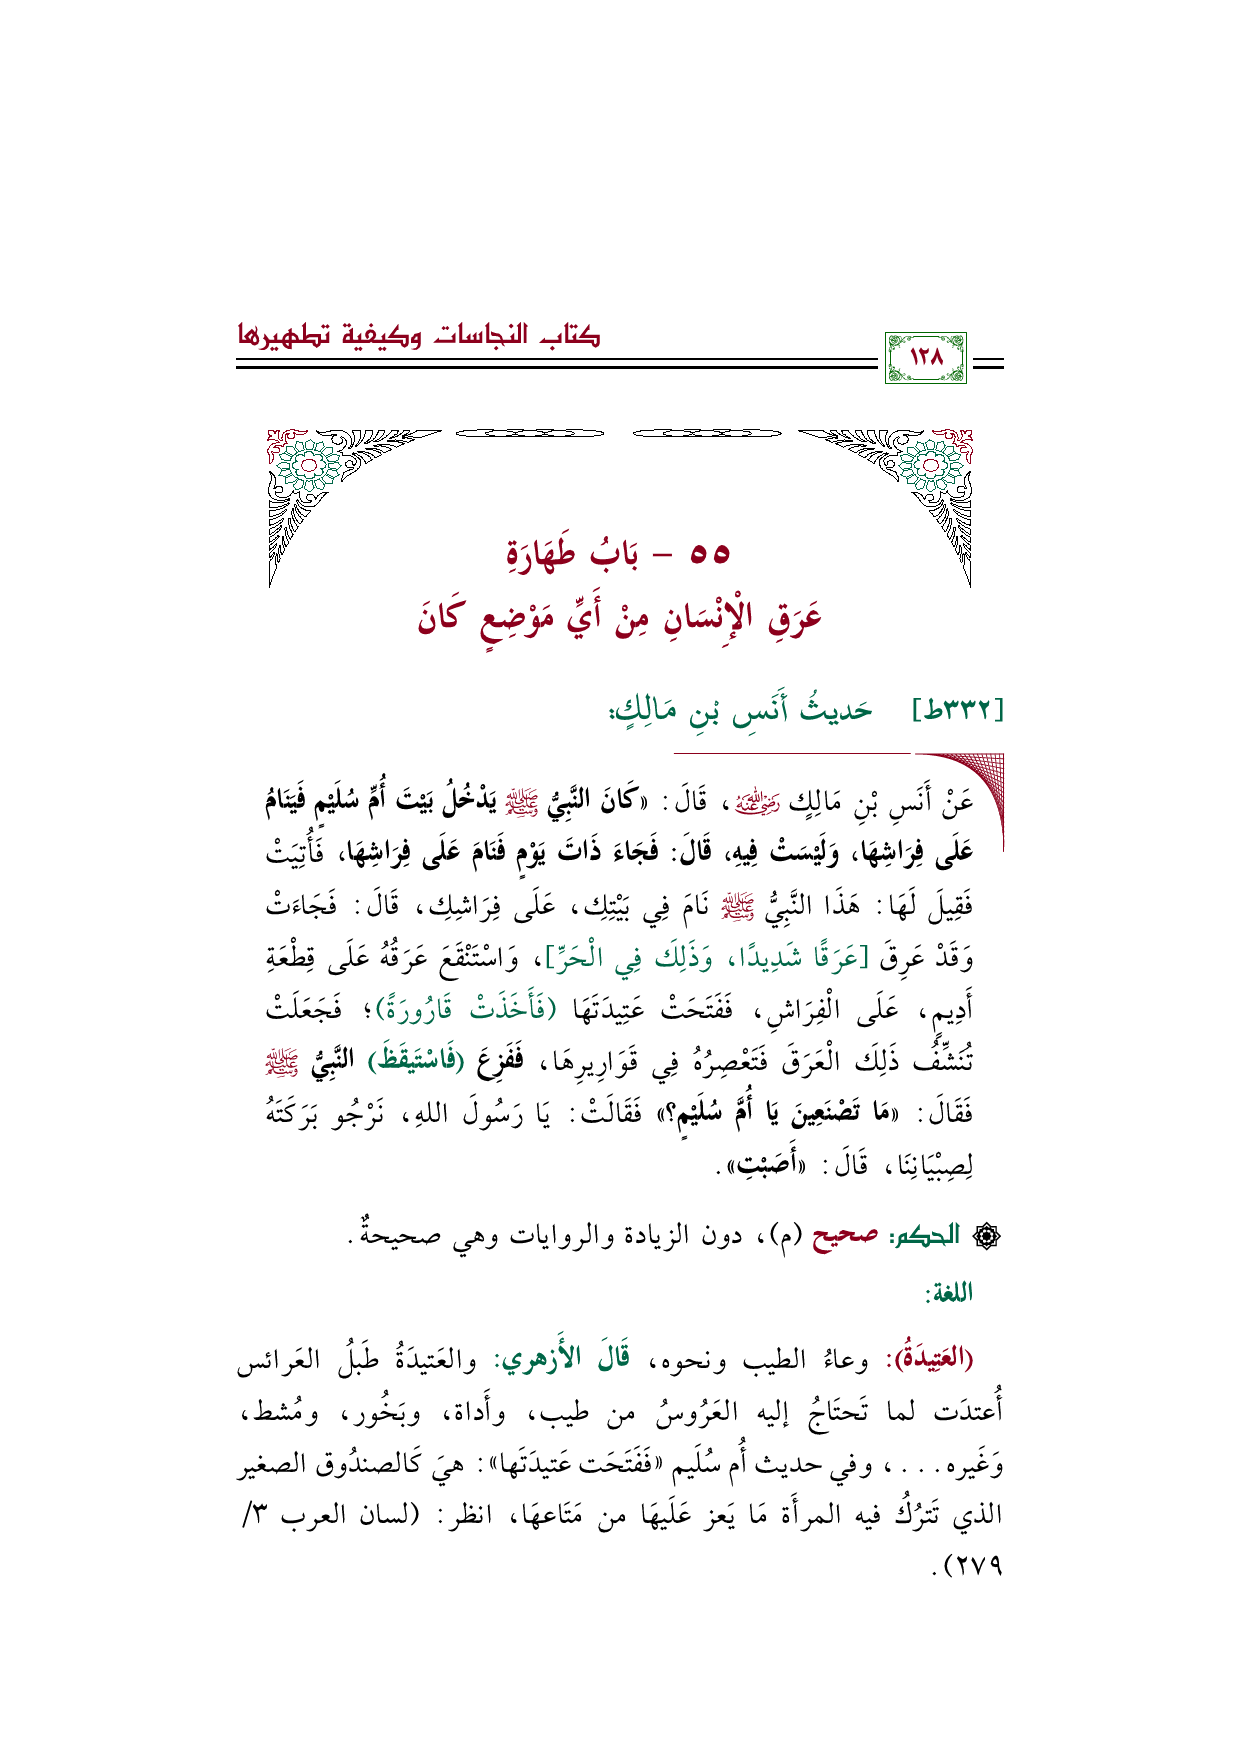 كتاب النجاسات وكيفية تطهيرها
١٢٨
٥٥ - بَابُ طَهَارَةِ
عَرَقِ الْإِنْسَانِ مِنْ أَيِّ مَوْضِعٍ كَانَ
[٣٣٢ط] حَديثُ أَنَسِ بْنِ مَالِكٍ:
عَنْ أَنَسِ بْنِ مَالِكٍ رضي الله عنه، قَالَ: «كَانَ النَّبِيُّ ﷺ يَدْخُلُ بَيْتَ أُمِّ سُلَيْمٍ فَيَنَامُ
عَلَى فِرَاشِهَا، وَلَيْسَتْ فِيهِ، قَالَ: فَجَاءَ ذَاتَ يَوْمٍ فَنَامَ عَلَى فِرَاشِهَا، فَأُتِيَتْ
فَقِيلَ لَهَا: هَذَا النَّبِيُّ ﷺ نَامَ فِي بَيْتِكِ، عَلَى فِرَاشِكِ، قَالَ: فَجَاءَتْ
وَقَدْ عَرِقَ [عَرَقًا شَدِيدًا، وَذَلِكَ فِي الْحَرِّ]، وَاسْتَنْقَعَ عَرَقُهُ عَلَى قِطْعَةِ
أَدِيمٍ، عَلَى الْفِرَاشِ، فَفَتَحَتْ عَتِيدَتَهَا (فَأَخَذَتْ قَارُورَةً)؛ فَجَعَلَتْ
تُنَشِّفُ ذَلِكَ الْعَرَقَ فَتَعْصِرُهُ فِي قَوَارِيرِهَا، فَفَزِعَ (فَاسْتَيقَظَ) النَّبِيُّ ﷺ
فَقَالَ: «مَا تَصْنَعِينَ يَا أُمَّ سُلَيْمٍ؟» فَقَالَتْ: يَا رَسُولَ اللهِ، نَرْجُو بَرَكَتَهُ
لِصِبْيَانِنَا، قَالَ: «أَصَبْتِ».
الحكم: صحيح (م)، دون الزيادة والروايات وهي صحيحةٌ.
اللغة:
(العَتِيدَةُ): وعاءُ الطيب ونحوه، قَالَ الأَزهري: والعَتيدَةُ طَبلُ العَرائس
أُعتدَت لما تَحتَاجُ إليه العَرُوسُ من طيب، وأَداة، وبَخُور، ومُشط،
وَغَيره...، وفي حديث أُم سُلَيم «فَفَتَحَت عَتيدَتَها»: هيَ كَالصندُوق الصغير
الذي تَترُكُ فيه المرأَة مَا يَعز عَلَيهَا من مَتَاعهَا، انظر: (لسان العرب ٣/
٢٧٩).